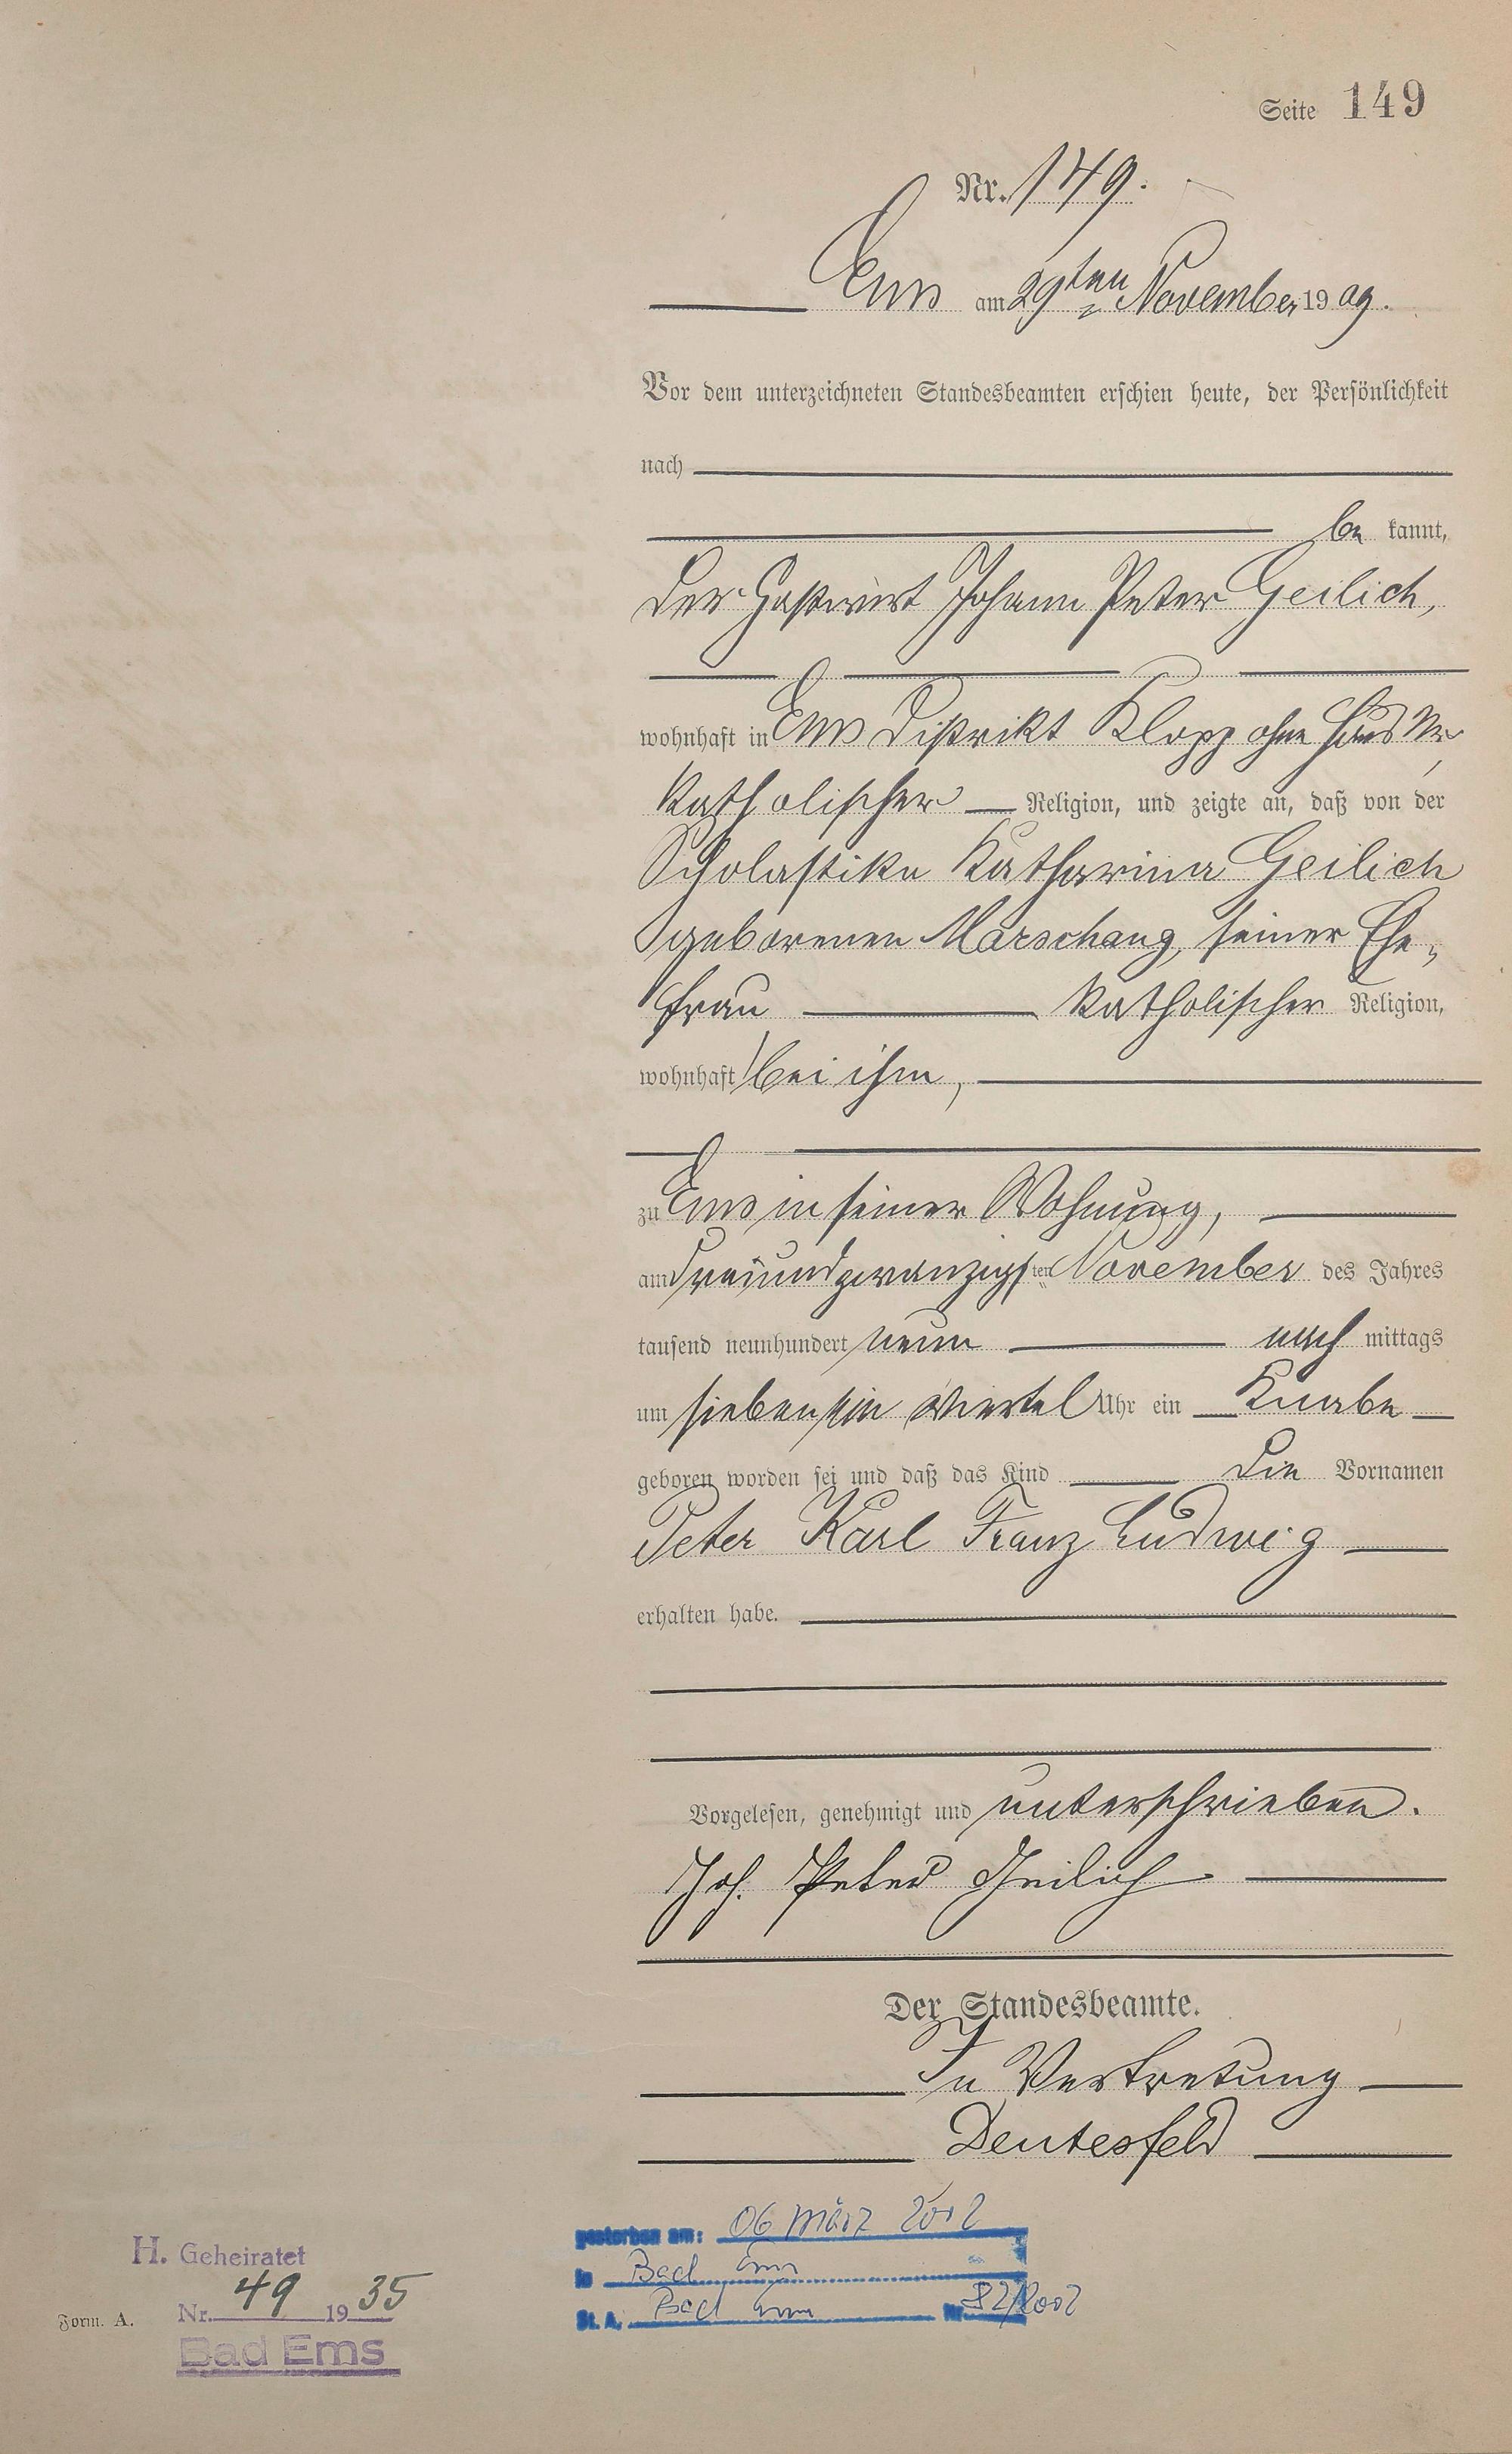 Seite 149
Nr. 149.
Ems am 29ten November 1909.
Vor dem unterzeichneten Standesbeamten erschien heute, der Persönlichkeit
nach
be kannt,
der Gastwirt Johann Peter Geilich,
wohnhaft in Ems Distrikt Klopp ohne Haus Nr,
katholischer Religion, und zeigte an, daß von der
Scholastika Katharina Geilich
geborenen Marschang, seiner Ehe-
frau katholischer Religion,
wohnhaft bei ihm,
zu Ems in seiner Wohnung,
am dreiundzwanzigsten November des Jahres
tausend neunhundert neun nach mittags
um sieben ein viertel Uhr ein Knabe
geboren worden sei und daß das Kind die Vornamen
Peter Karl Franz Ludwig
erhalten habe.
Vorgelesen, genehmigt und unterschrieben.
Joh. Peter Geilich
Der Standesbeamte.
In Vertretung
Deutesfeld
H. Geheiratet
Nr. 49 1935
Bad Ems
Form. A.
gestorben am: 06 März 2002
in Bad Ems
St. A. Bad Ems Nr. 82/2002